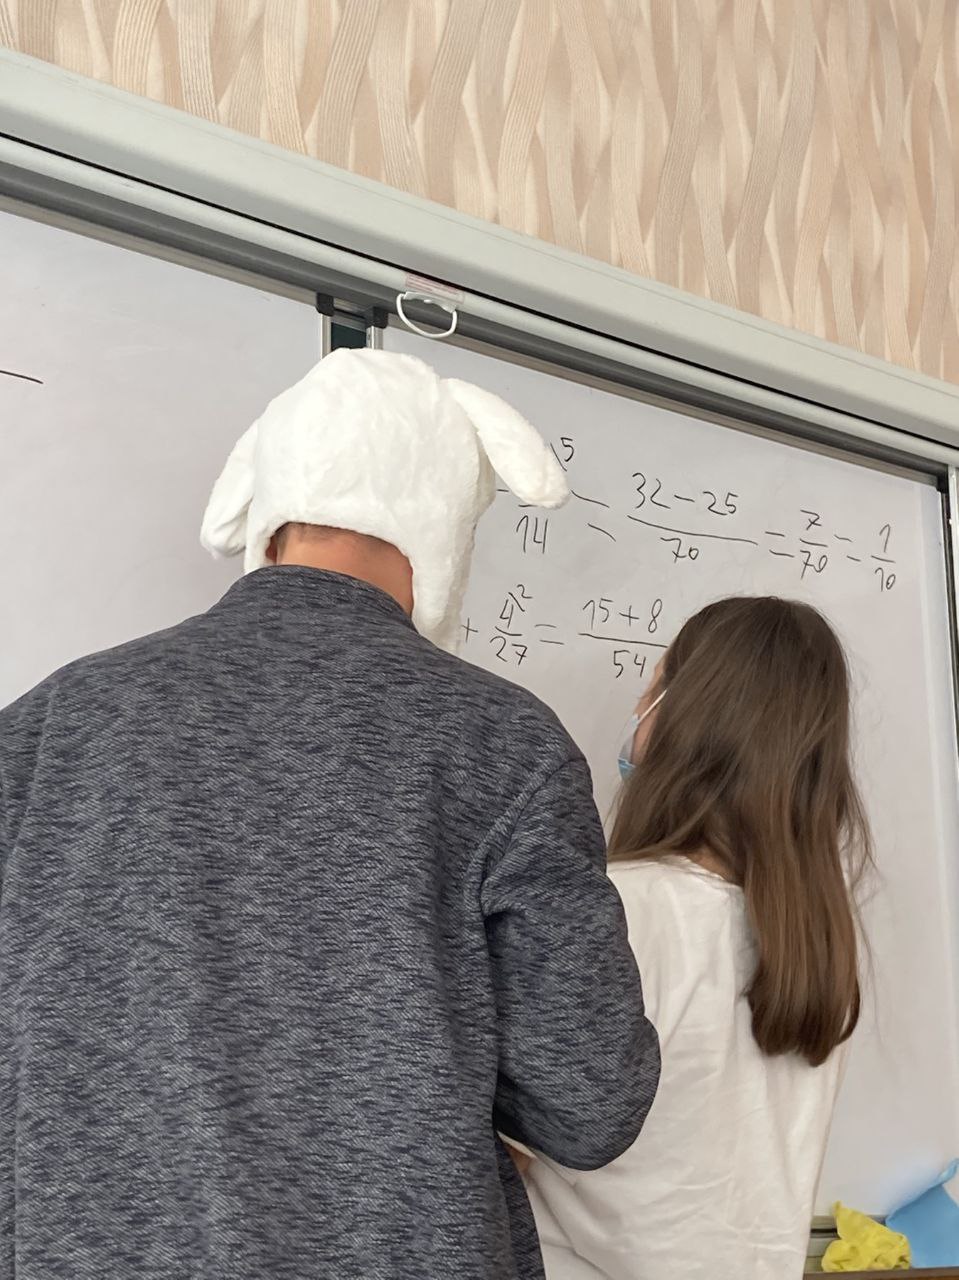 - \frac{}{14}^{\5} = \frac{32-25}{70} = \frac{7}{70} = \frac{1}{10}
+ \frac{4^{\2}}{27} = \frac{15+8}{54}